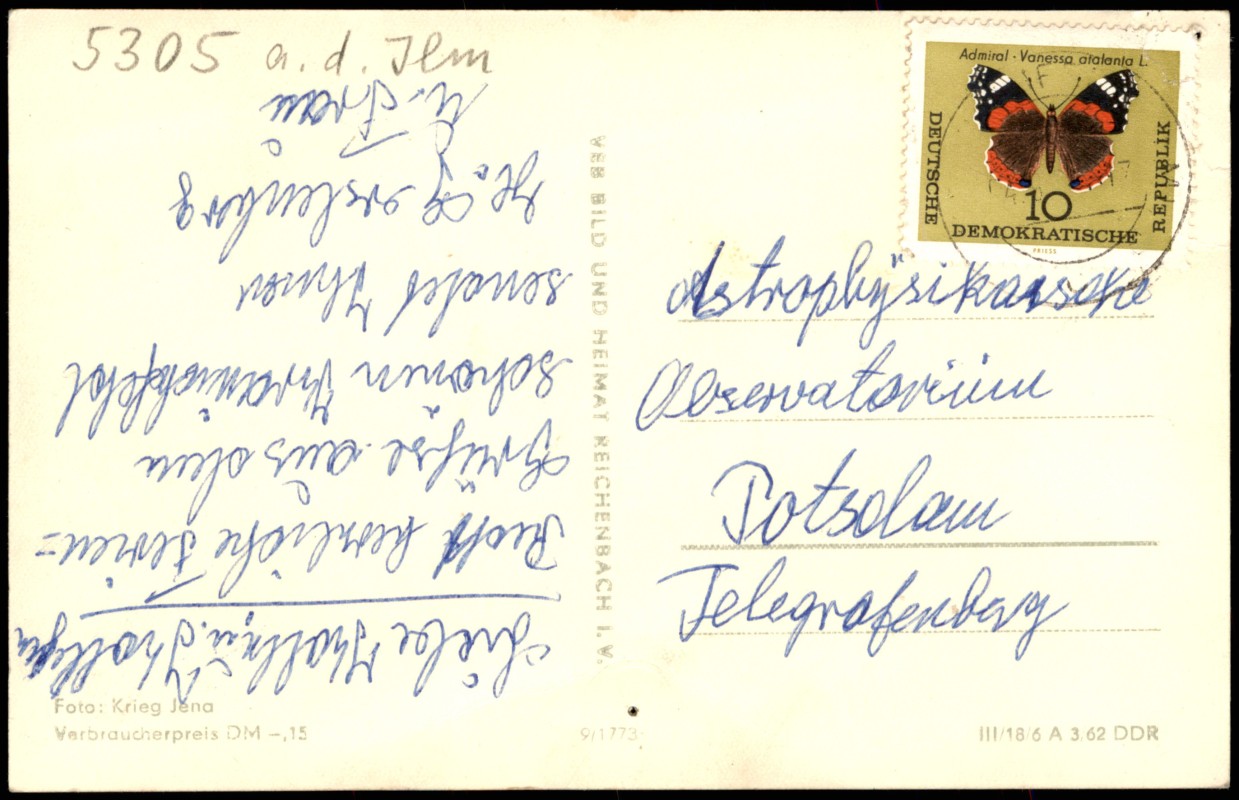 5305 a. d. Ilm
Liebe Kolln. u. Kollegen
Recht herrliche Ferien=
Grüße aus dem
schönen Kranichfeld
sendet Ihnen
H. Gerstenberg
u. Frau
VEB BILD UND HEIMAT REICHENBACH I. V.
Foto: Krieg Jena
Verbraucherpreis DM –,15
9/1773
Admiral · Vanessa atalanta L.
DEUTSCHE
DEMOKRATISCHE
REPUBLIK
10
PRIESS
Astrophysikalische
Observatorium
Potsdam
Telegrafenberg
III/18/6 A 3.62 DDR